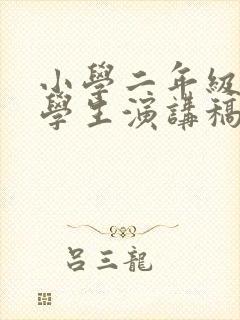 小學二年級
學生演講稿
呂三龍